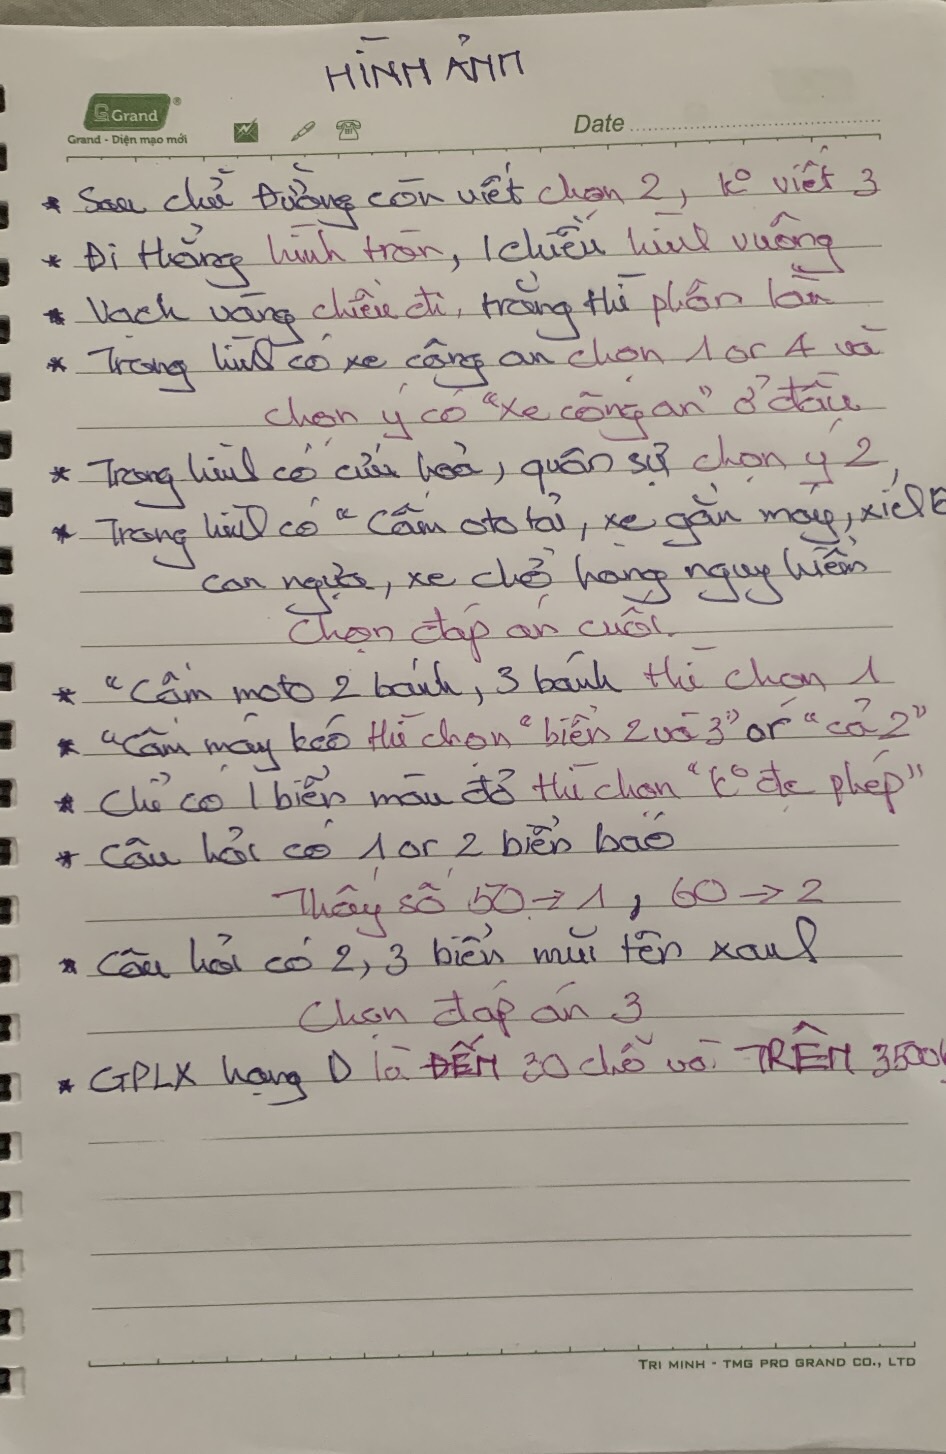 HÌNH ẢNH
Grand®
Grand - Diện mạo mới
Date
* Sau chữ Đường còn viết chọn 2, kº viết 3
* Đi thẳng hình tròn, 1 chiều hình vuông
* Vạch vàng chiều đi, trắng thì phân làn
* Trong hình có xe công an chọn 1 or 4 và
chọn ý có "xe công an" ở đầu
* Trong hình có cứu hoả, quân sự chọn ý 2,
* Trong hình có "Cấm oto tải, xe gắn máy,
con người, xe chở hàng nguy hiểm
Chọn đáp án cuối.
* "Cấm moto 2 bánh, 3 bánh thì chọn 1
* "Cấm máy kéo thì chọn "biển 2 và 3" or "cả 2"
* Chỉ có 1 biển màu đỏ thì chọn "kº đc phép"
* Câu hỏi có 1 or 2 biển báo
Thấy số 50 → 1, 60 → 2
* Câu hỏi có 2, 3 biển mũi tên xanh
Chọn đáp án 3
* GPLX hạng D là ĐẾN 30 chỗ và TRÊN 3500
TRI MINH - TMG PRO GRAND CO., LTD